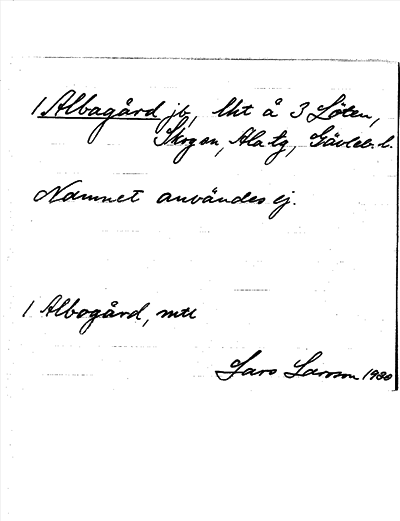 1 Albagård jb, lht å 3 Löten,
Skogen, Ala tg, Gävleb. l.
Namnet användes ej.
1 Albogård, mtl
Lars Larsson 1930